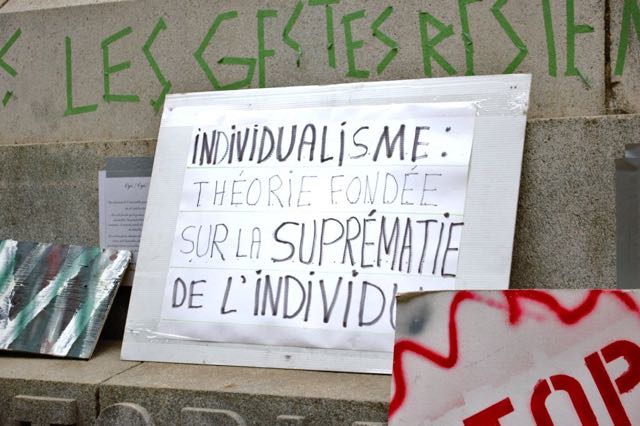 LES GESTES RÉSI
iNDiViDUALiSME :
THÉORIE FONDÉE
SUR LA SUPRÉMATIE
DE L'iNDiVID
TOP